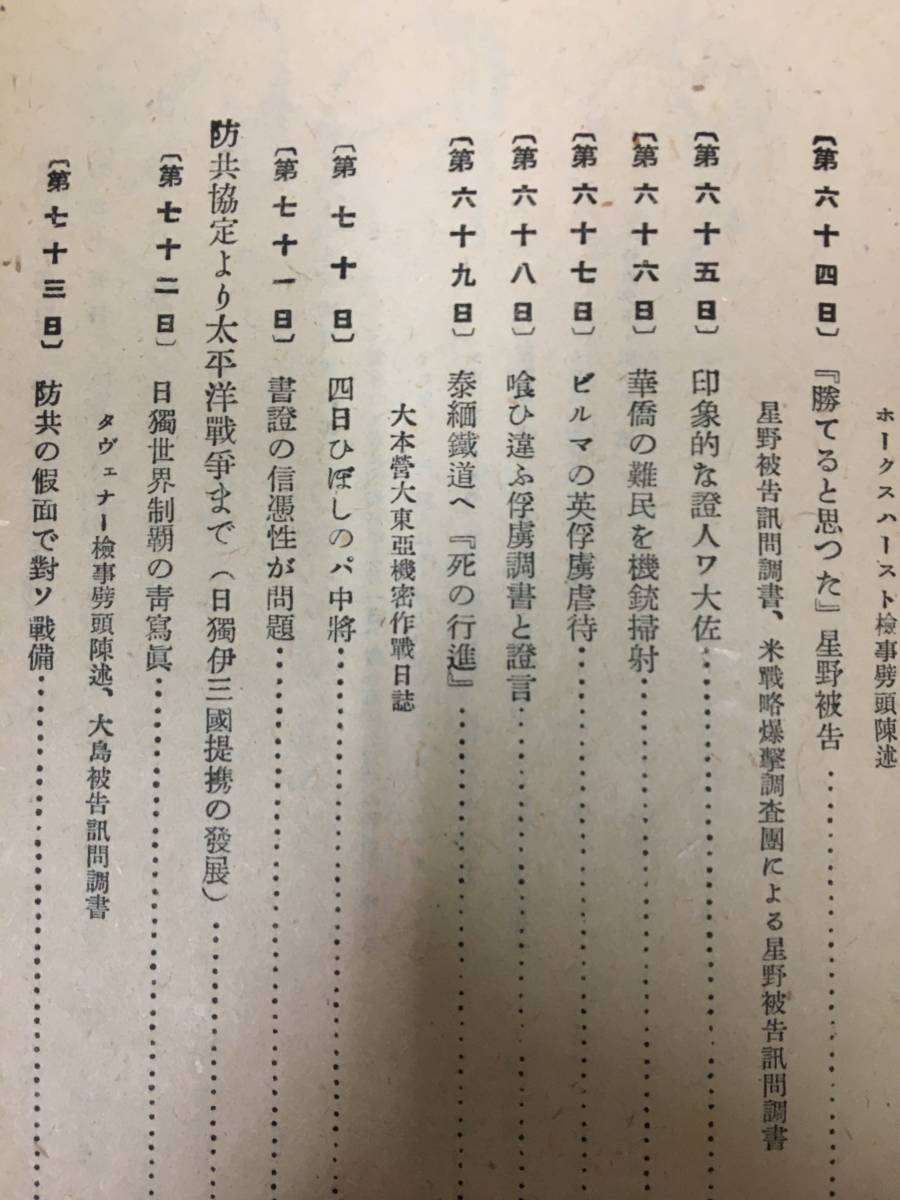 ホークスハースト檢事劈頭陳述
〔第六十四日〕『勝てると思つた』星野被告
星野被告訊問調書、米戰略爆擊調査團による星野被告訊問調書
〔第六十五日〕印象的な證人ワ大佐
〔第六十六日〕華僑の難民を機銃掃射
〔第六十七日〕ビルマの英俘虜虐待
〔第六十八日〕喰ひ違ふ俘虜調書と證言
〔第六十九日〕泰緬鐵道へ『死の行進』
大本營大東亞機密作戰日誌
〔第七十日〕四日ひぼしのパ中將
〔第七十一日〕書證の信憑性が問題
防共協定より太平洋戰爭まで（日獨伊三國提携の發展）
〔第七十二日〕日獨世界制覇の靑寫眞
タヴェナー檢事劈頭陳述、大島被告訊問調書
〔第七十三日〕防共の假面で對ソ戰備